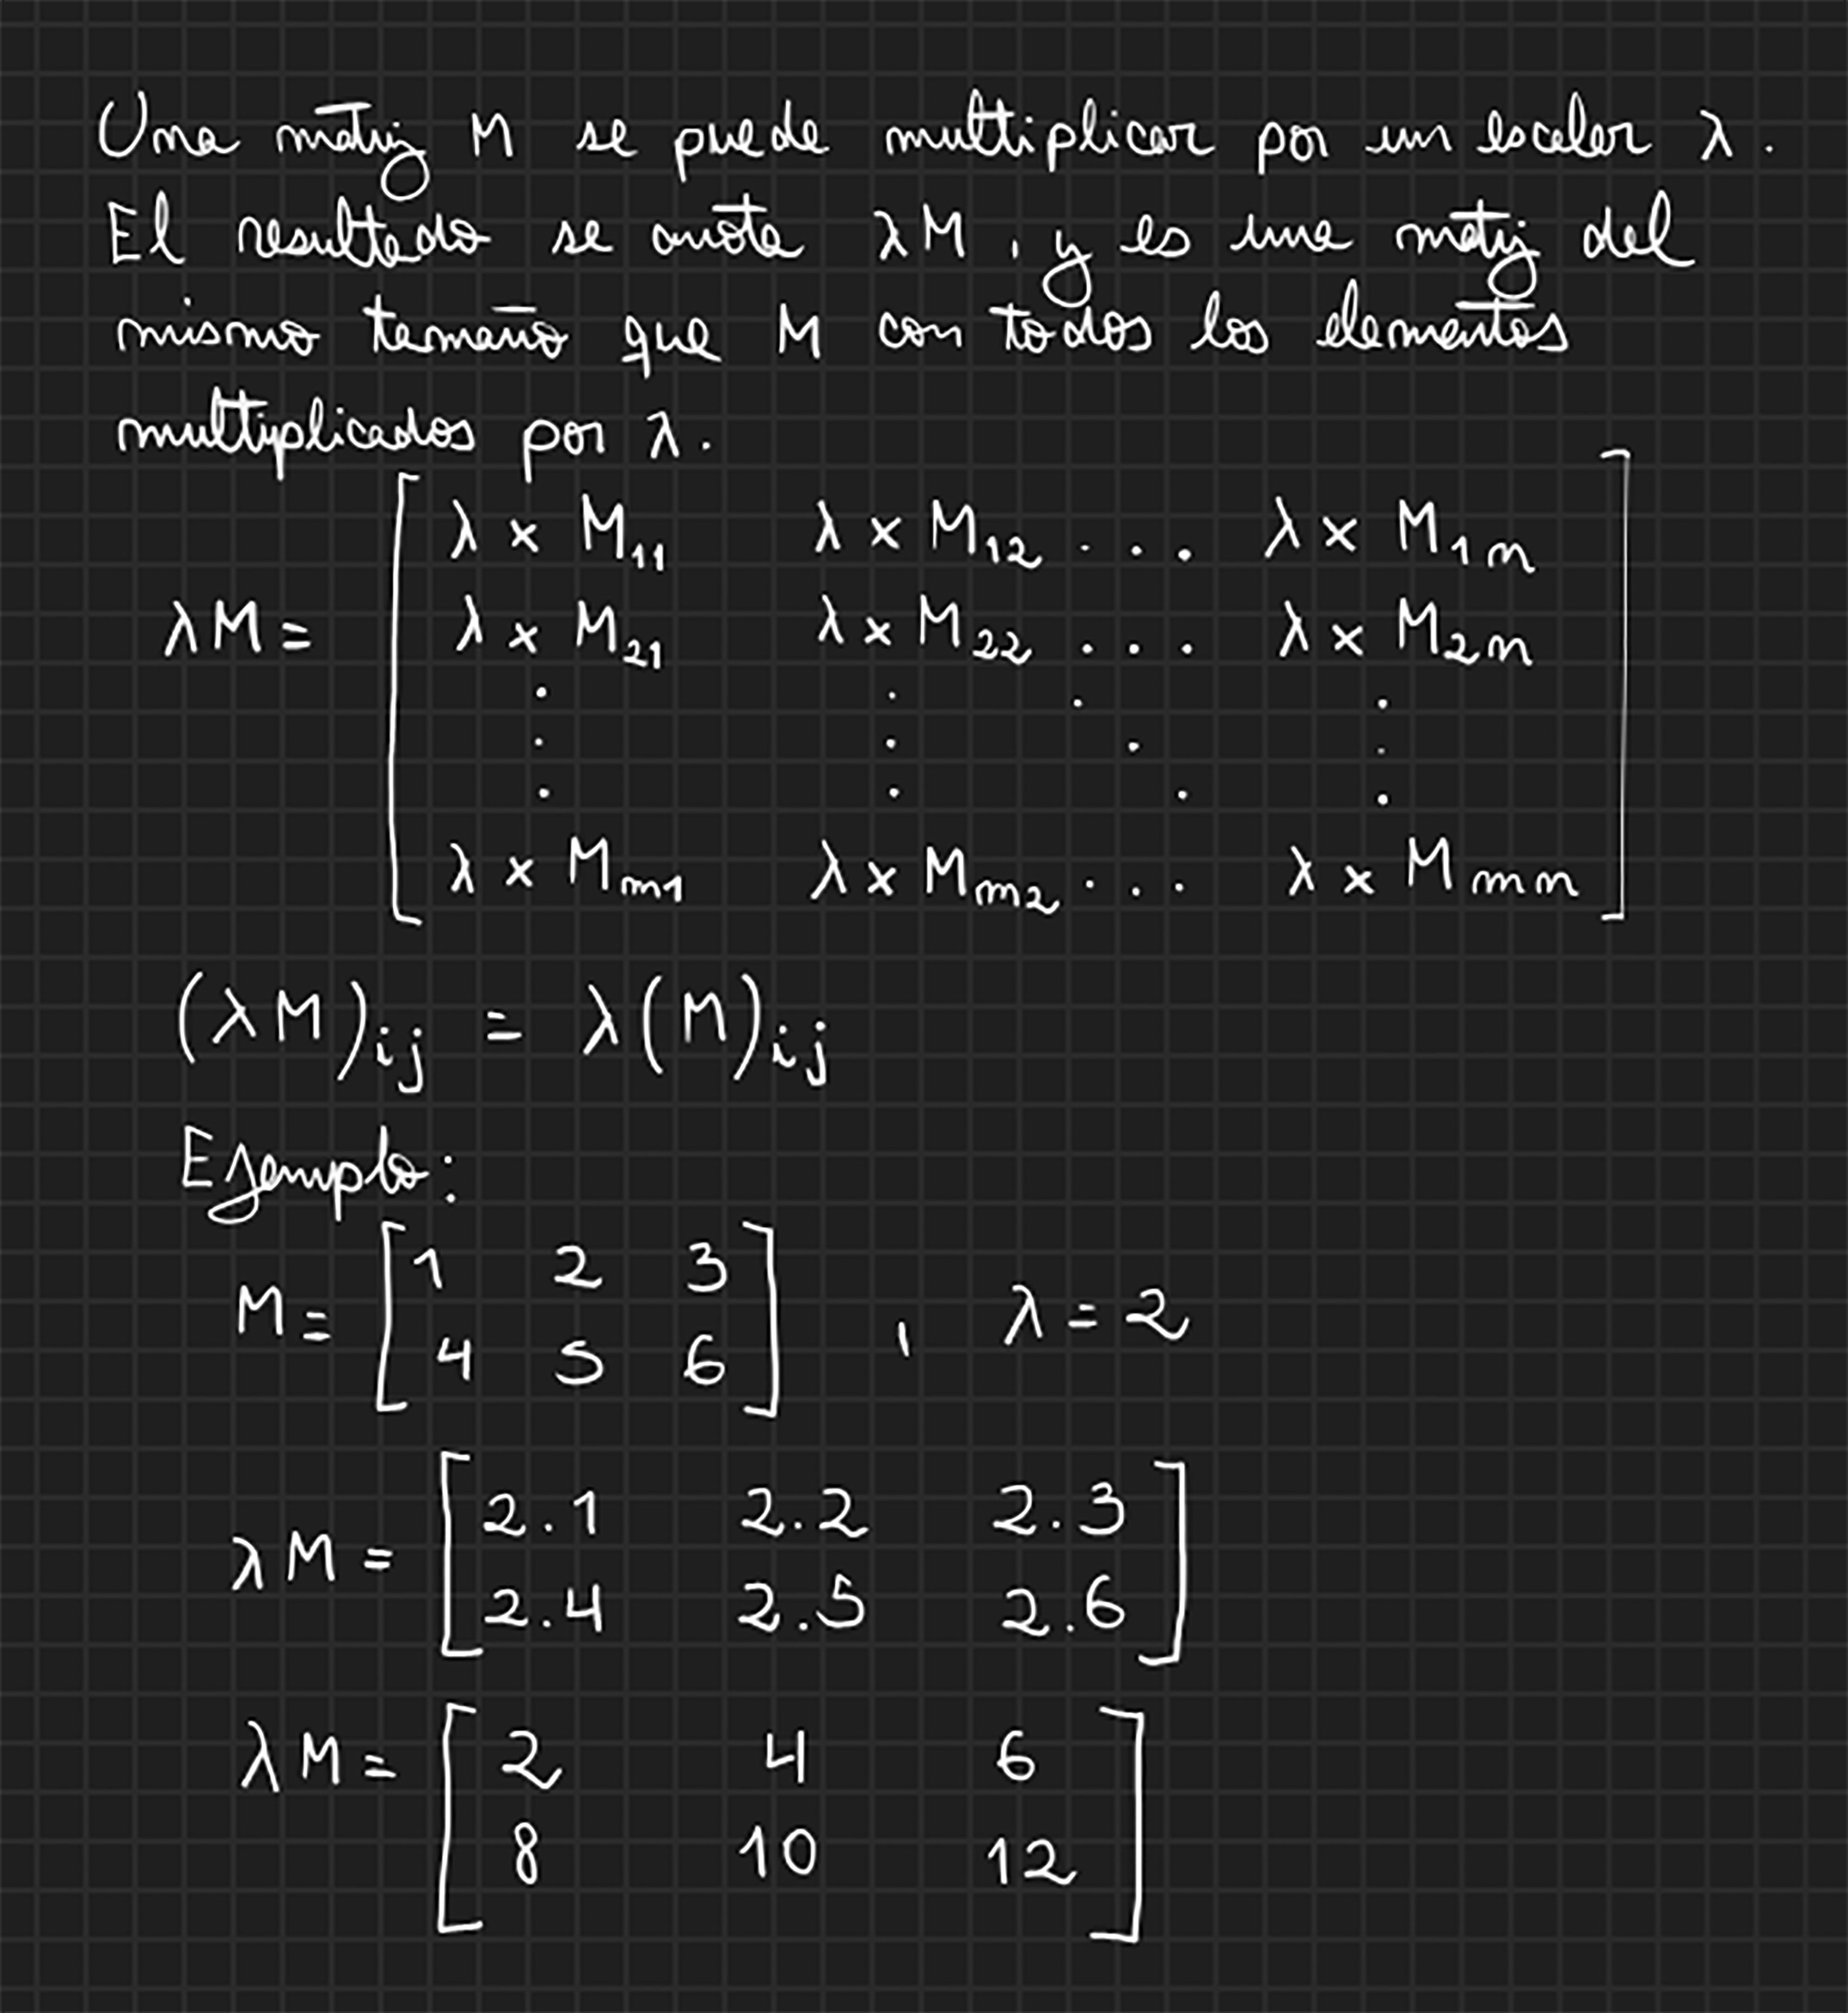 Una matriz M se puede multiplicar por un escalar λ.
El resultado se anota λM, y es una matriz del
mismo tamaño que M con todos los elementos
multiplicados por λ.
λ × M₁₁ λ × M₁₂ ... λ × M₁ₙ
λM = λ × M₂₁ λ × M₂₂ ... λ × M₂ₙ
⋮ ⋮ ⋱ ⋮
λ × Mₘ₁ λ × Mₘ₂ ... λ × Mₘₙ
(λM)ij = λ(M)ij
Ejemplo:
M = [1 2 3
4 5 6] , λ = 2
λM = [2.1 2.2 2.3
2.4 2.5 2.6]
λM = [2 4 6
8 10 12]